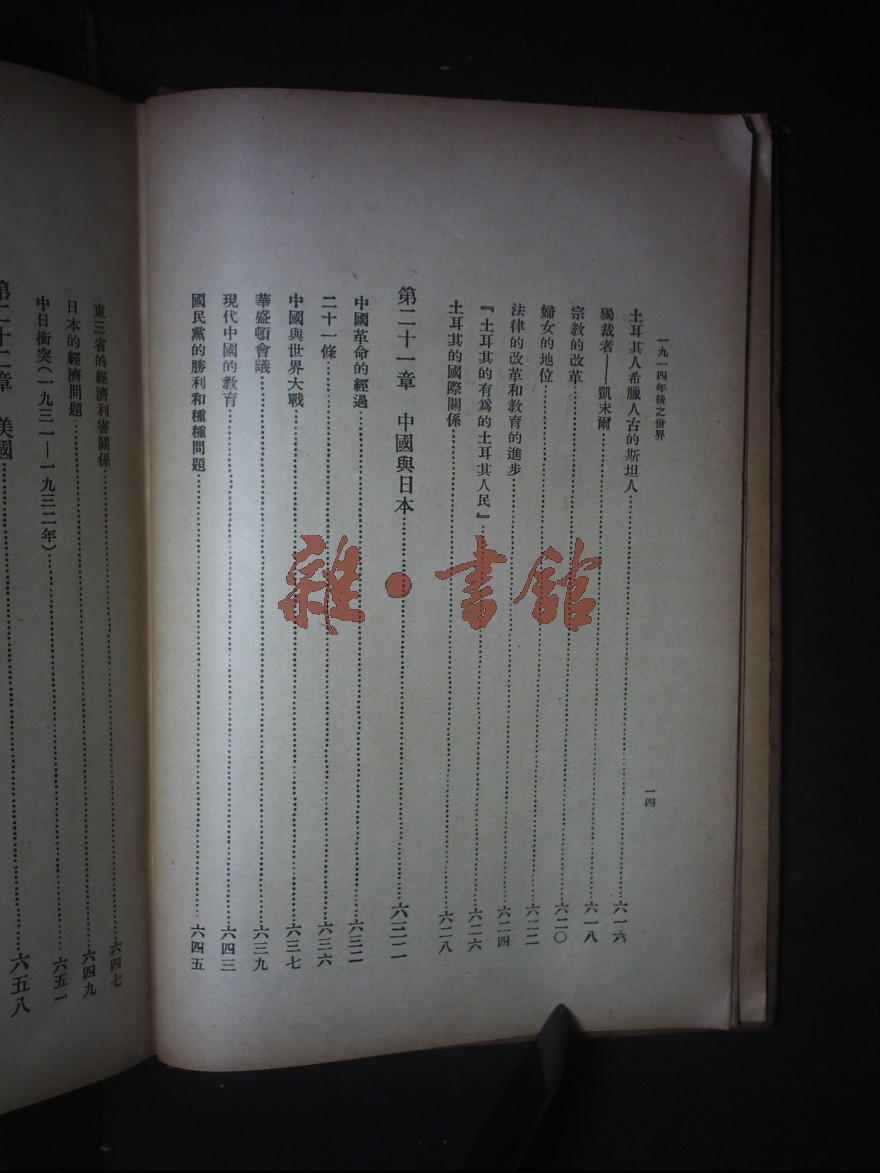 一九一四年後之世界
一四
土耳其人希臘人古的斯坦人……六一六
獨裁者——凱末爾……六一八
宗教的改革……六二〇
婦女的地位……六二二
法律的改革和教育的進步……六二四
『土耳其的有爲的土耳其人民』……六二六
土耳其的國際關係……六二八
第二十一章 中國與日本……六三二
中國革命的經過……六三二
二十一條……六三六
中國與世界大戰……六三七
華盛頓會議……六三九
現代中國的教育……六四三
國民黨的勝利和種種問題……六四五
東三省的經濟利害關係……六四七
日本的經濟問題……六四九
中日衝突(一九三一—一九三二年)……六五一
第二十二章 美國……六五八
雜·書館